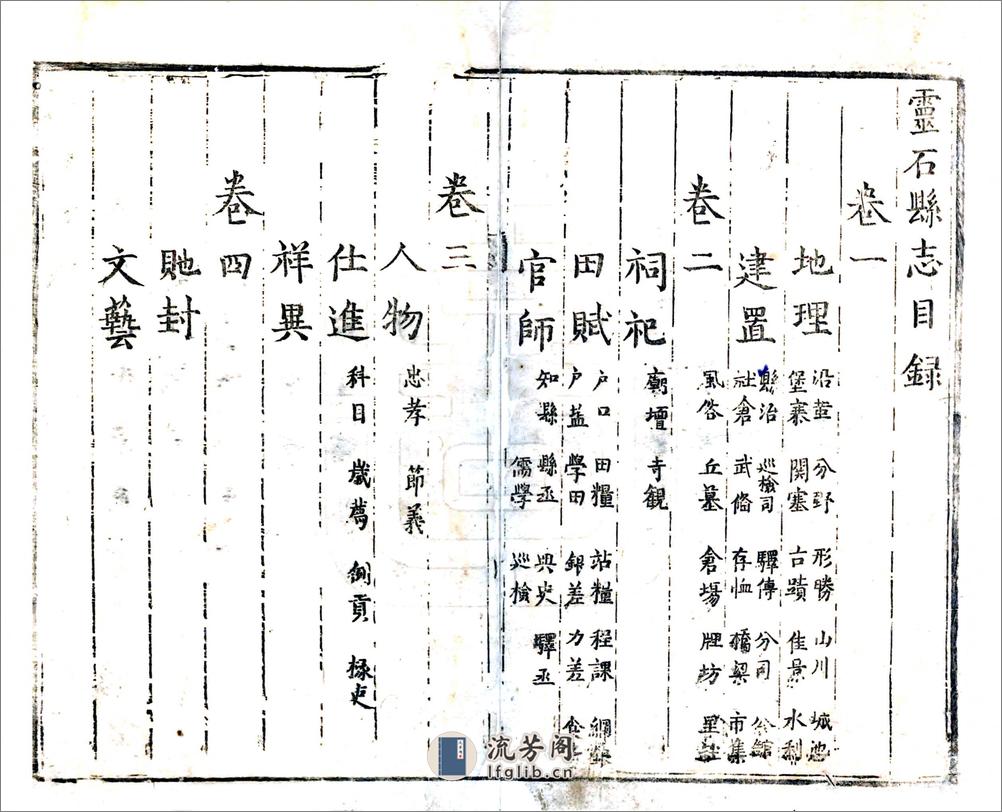 靈石縣志目録
卷一
地理 沿革 分野 形勝 山川 城池
堡寨 関塞 古蹟 佳景 水利
建置 縣治 巡檢司 驛傳 分司
社倉 武備 存恤 橋梁 市集
風俗 丘墓 倉場 牌坊
卷二
祠祀 廟壇 寺観
田賦 户口 田糧 站糧 程課
户盐 學田 銀差 力差
官師 知縣 縣丞 典史 驛丞
儒學 巡檢
卷三
人物 忠孝 節義
仕進 科目 歲薦 例貢 掾吏
祥異
卷四
貤封
文藝
流芳阁
lfglib.cn